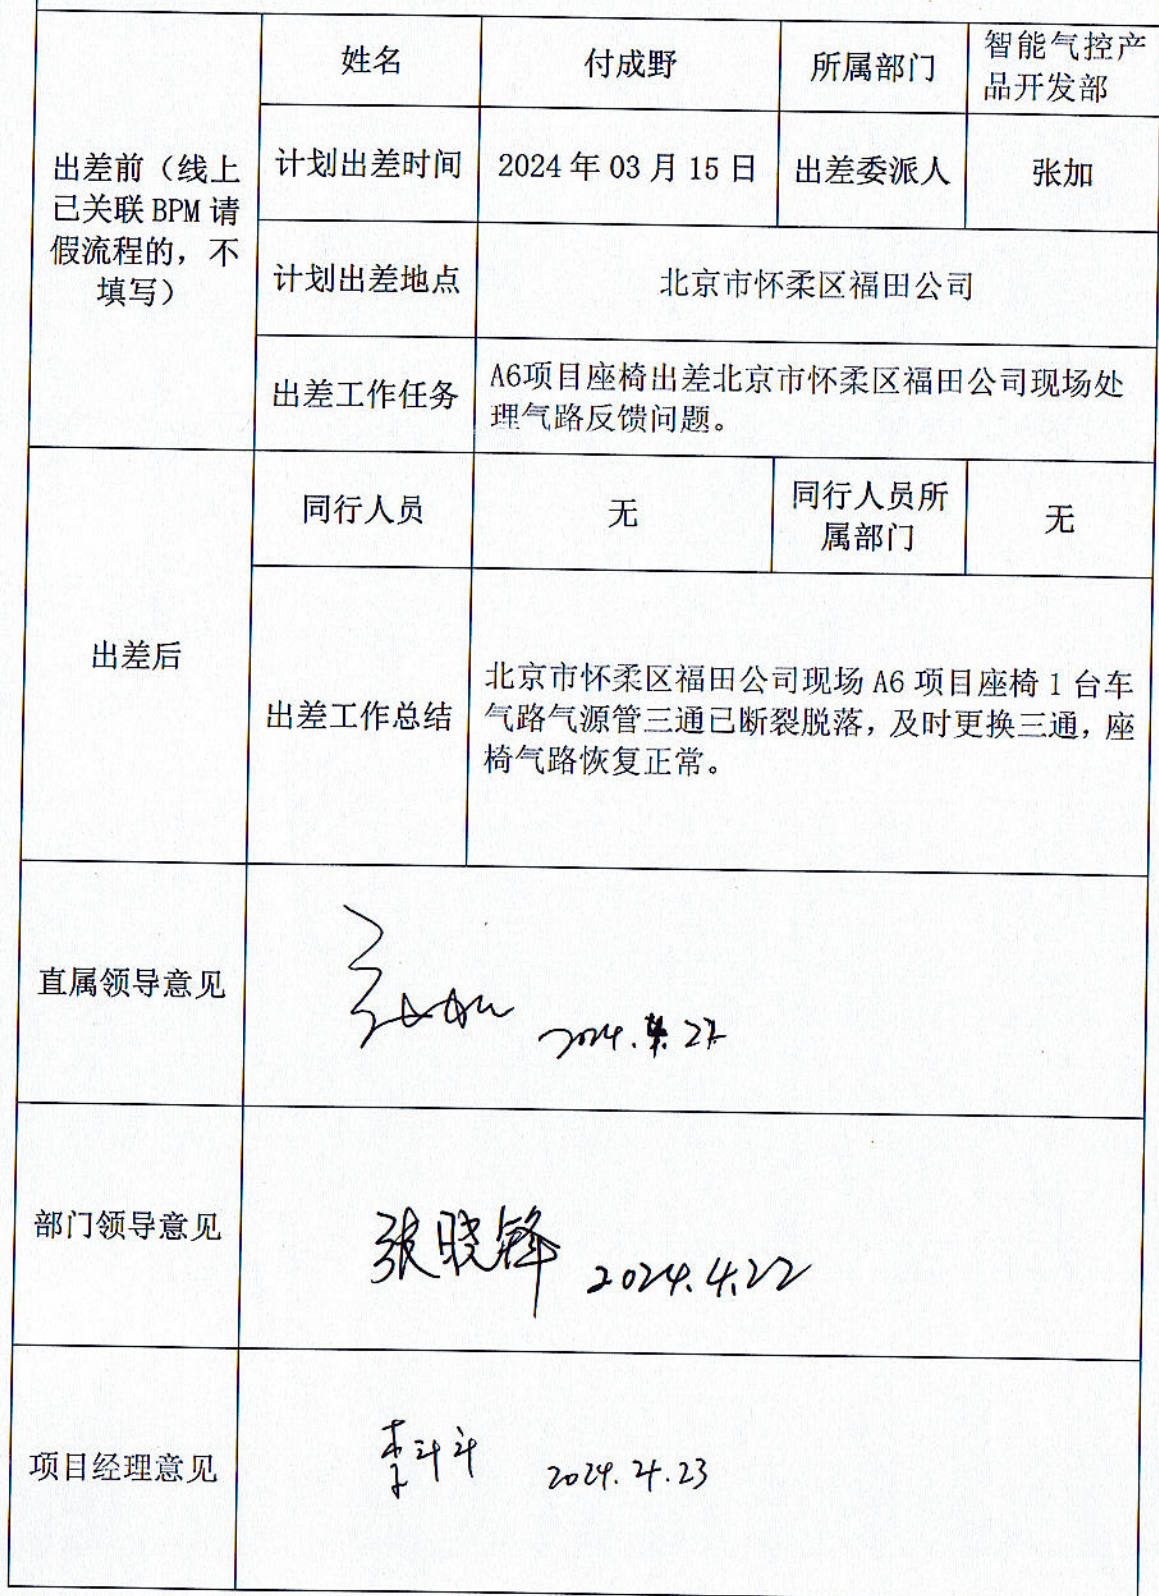 姓名
付成野
所属部门
智能气控产
品开发部
出差前（线上
已关联 BPM 请
假流程的，不
填写）
计划出差时间
2024 年 03 月 15 日
出差委派人
张加
计划出差地点
北京市怀柔区福田公司
出差工作任务
A6项目座椅出差北京市怀柔区福田公司现场处
理气路反馈问题。
出差后
同行人员
无
同行人员所
属部门
无
出差工作总结
北京市怀柔区福田公司现场 A6 项目座椅 1 台车
气路气源管三通已断裂脱落，及时更换三通，座
椅气路恢复正常。
直属领导意见
部门领导意见
张晓锋 2024.4.22
项目经理意见
李斗斗 2024.4.23